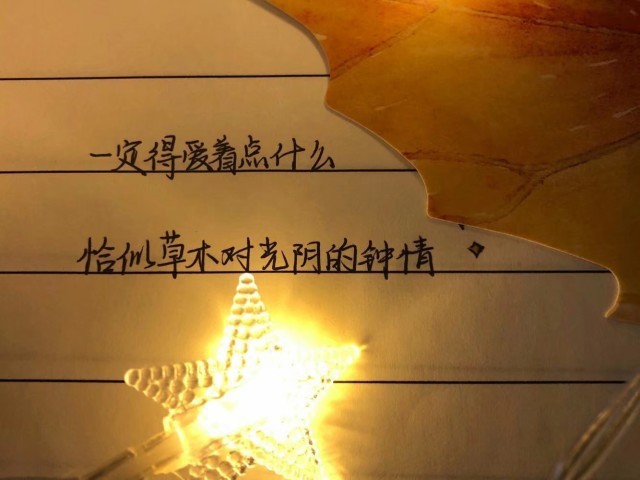 一定得爱着点什么
恰似草木对光阴的钟情